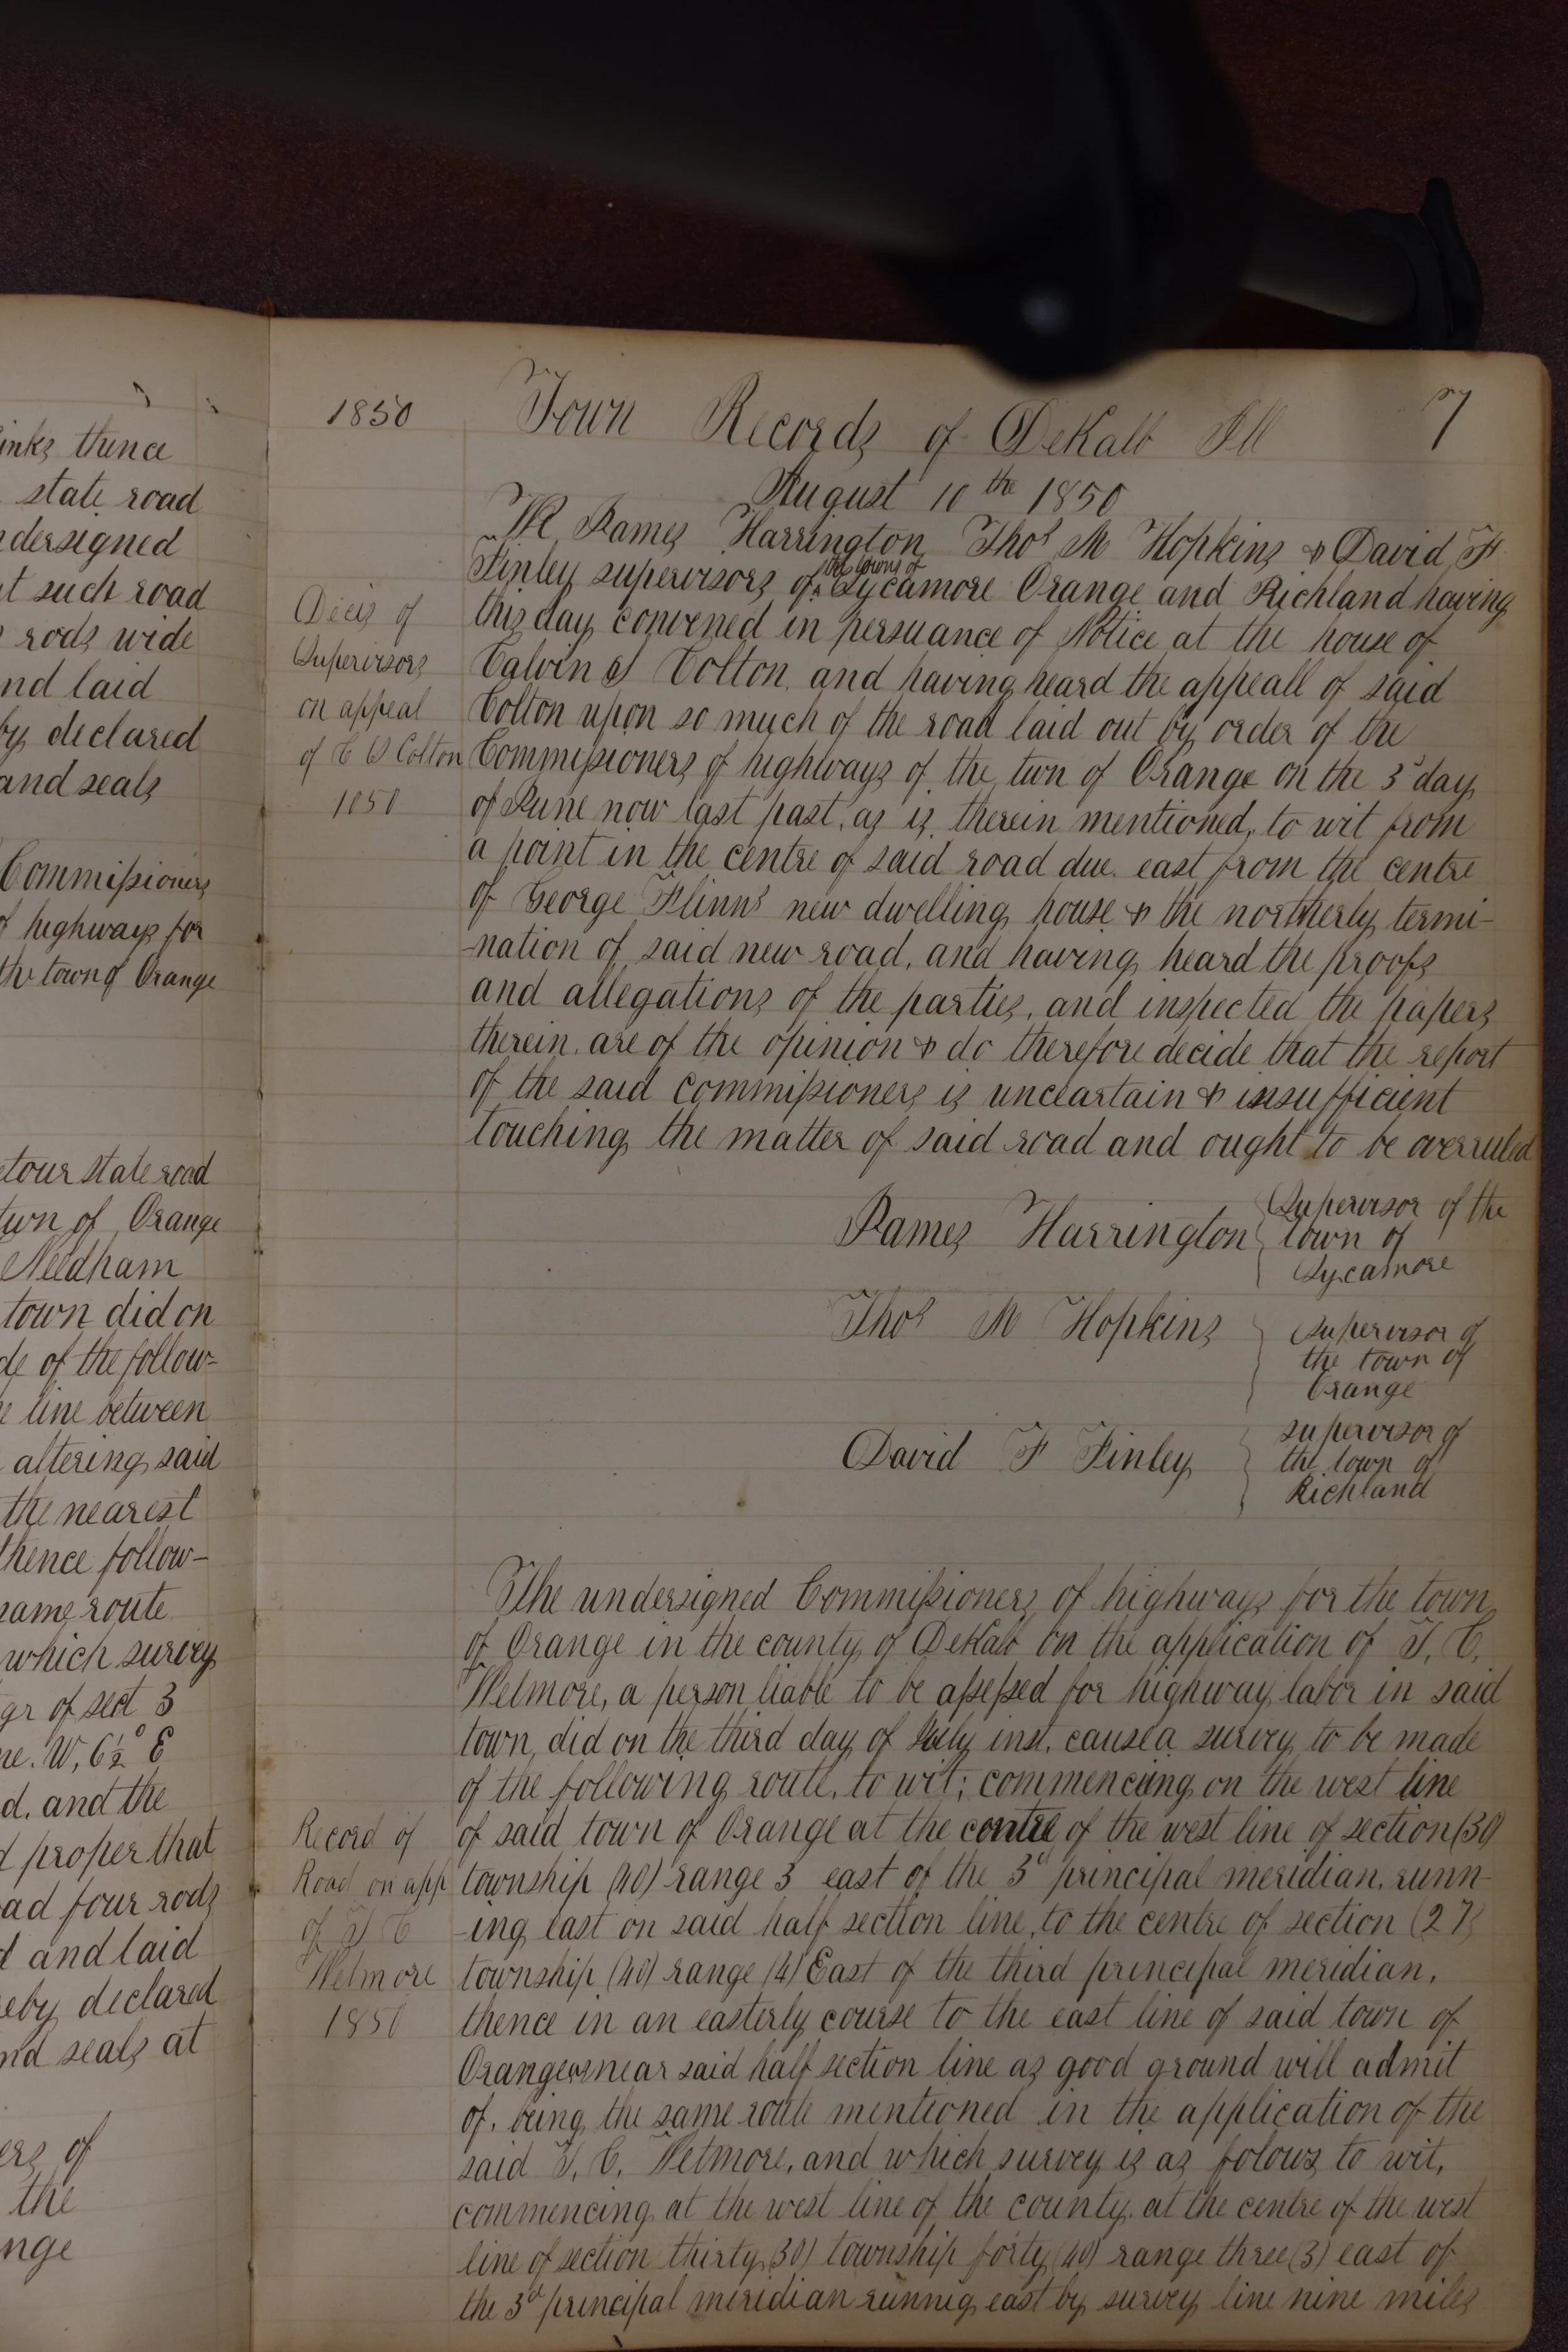 inks thence
state road
dersigned
t such road
rods wide
nd laid
by declared
and seals
Commissioners
f highways for
the town of Orange
etour state road
twn of Orange
Needham
town did on
de of the follow=
e line between
altering said
the nearest
thence follow-
same route
which survey
qr of sect 3
ne. W, 6½° E
d. and the
d proper that
ad four rods
d and laid
eby declared
nd seals at
ers of
the
nge
1850 Town Records of DeKalb Ill 7
August 10th 1850
We James Harrington Thos M Hopkins & David F
Finley supervisors of the towns of Sycamore Orange and Richland having
this day convened in persuance of Notice at the house of
Calvin S Colton. and having heard the appeall of said
Colton upon so much of the road laid out by order of the
Commissioners of highways of the twn of Orange on the 3d day
of June now last past, as is therein mentioned, to wit from
a point in the centre of said road due east from the centre
of George Flinns new dwelling house & the northerly termi-
-nation of said new road, and having heard the proofs
and allegations of the parties, and inspected the papers
therein. are of the opinion & do therefore decide that the report
of the said commissioners is unceartain & insufficient
touching the matter of said road and ought to be overruled
Decis of
Supervisors
on appeal
of C S Colton
1850
James Harrington Supervisor of the
town of
Sycamore
Thos M Hopkins supervisor of
the town of
Orange
David F Finley supervisor of
the town of
Richland
The undersigned Commissioners of highways for the town
of Orange in the county of DeKalb on the application of T, C,
Wetmore, a person liable to be assessed for highway labor in said
town, did on the third day of July inst. cause a survey to be made
of the following route, to wit; commencing on the west line
of said town of Orange at the centre of the west line of section (30)
township (40) range 3 east of the 3d principal meridian, runn-
-ing east on said half section line, to the centre of section (27)
township (40) range (4) East of the third principal meridian.
thence in an easterly course to the east line of said town of
Orange as near said half section line as good ground will admit
of. being the same route mentioned in the application of the
said T, C, Wetmore, and which survey is as folows, to wit,
commencing at the west line of the county. at the centre of the west
line of section thirty (30) township forty (40) range three (3) east of
the 3d principal meridian runnig east by survey line nine miles
Record of
Road on app
of T C
Wetmore
1850